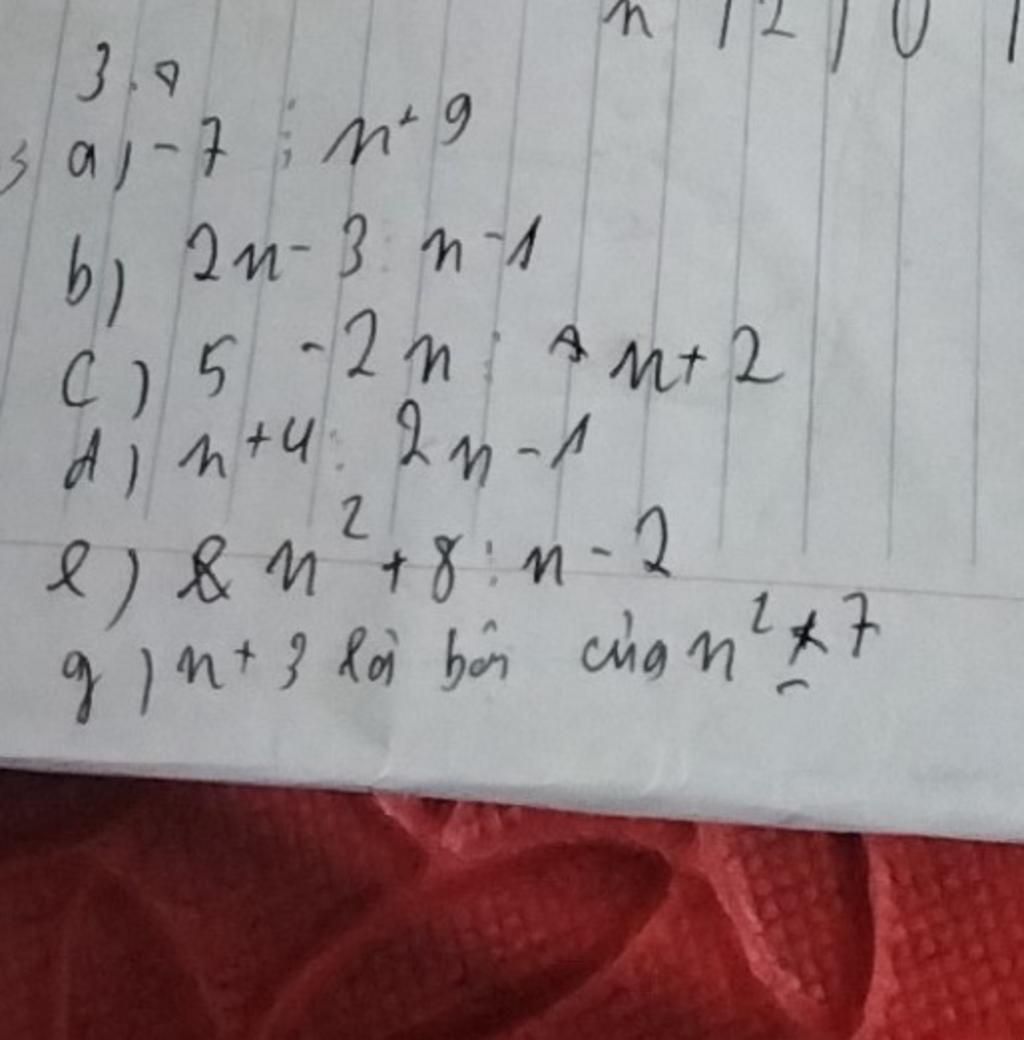 n | 2 | 0 |
3.
a, -7 ⋮ n+9
b) 2n-3 ⋮ n-1
c) 5 -2n ⋮ n+2
d) n+4 ⋮ 2n-1
e) n²+8 ⋮ n-2
g) n+3 là bôi của n² - 7